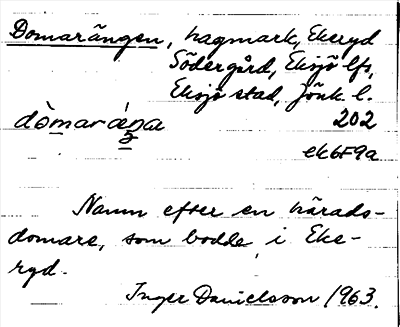 Domarängen, hagmark, Ekeryd
Södergård, Eksjö lfs,
Eksjö stad, Jönk. l.
dòmaráŋa
202
ek6F9a
Namn efter en härads-
domare, som bodde i Eke-
ryd.
Inger Danielsson 1963.